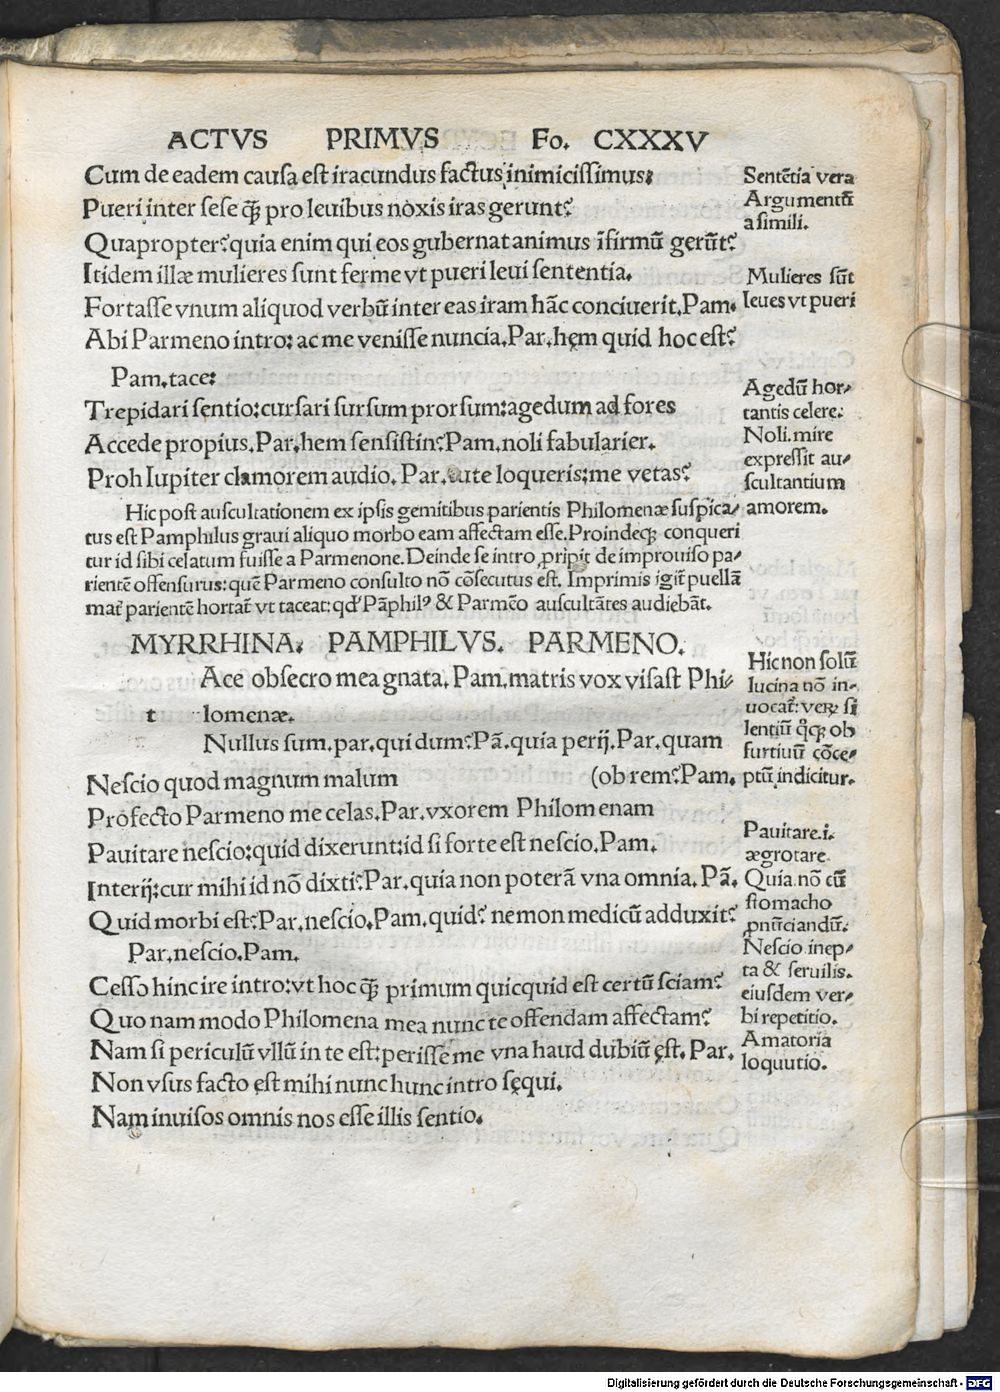 ACTVS PRIMVS Fo. CXXXV
Cum de eadem causa est iracundus factus inimicissimus:
Pueri inter sese q̃ꝫ pro leuibus noxis iras gerunt?
Quapropter? quia enim qui eos gubernat animus ĩfirmũ gerũt?
Itidem illæ mulieres sunt ferme vt pueri leui sententia.
Fortasse vnum aliquod verbũ inter eas iram hãc conciuerit. Pam.
Abi Parmeno intro: ac me venisse nuncia. Par. hem quid hoc est?
Pam. tace:
Trepidari sentio: cursari sursum prorsum: agedum ad fores
Accede propius. Par. hem sensistin? Pam. noli fabularier.
Proh Iupiter clamorem audio. Par. tute loqueris: me vetas?
Hic post auscultationem ex ipsis gemitibus parientis Philomenæ suspica/
tus est Pamphilus graui aliquo morbo eam affectam esse. Proindeqꝫ conqueri
tur id sibi celatum fuisse a Parmenone. Deinde se intro ꝓripit de improuiso pa/
rientẽ offensurus: quẽ Parmeno consulto nõ cõsecutus est. Imprimis igit̃ puellã
mat̃ parientẽ hortat̃ vt taceat: qd' Pãphilꝰ & Parmẽo auscultãtes audiebãt.
MYRRHINA. PAMPHILVS. PARMENO.
Ace obsecro mea gnata. Pam. matris vox visast Phi/
t lomenæ.
Nullus sum. par. qui dum? Pã. quia perij. Par. quam
Nescio quod magnum malum (ob rem? Pam.
Profecto Parmeno me celas. Par. vxorem Philomenam
Pauitare nescio: quid dixerunt: id si forte est nescio. Pam.
Interij: cur mihi id nõ dixti? Par. quia non poterã vna omnia. Pã.
Quid morbi est? Par. nescio. Pam. quid? nemon medicũ adduxit?
Par. nescio. Pam.
Cesso hinc ire intro: vt hoc q̃ꝫ primum quicquid est certũ sciam?
Quo nam modo Philomena mea nunc te offendam affectam?
Nam si periculũ vllũ in te est: perisse me vna haud dubiũ ęst. Par.
Non vsus facto ęst mihi nunc hunc intro sęqui.
Nam inuisos omnis nos esse illis sentio.
Sentẽtia vera
Argumentũ
a simili.
Mulieres sũt
leues vt pueri
Agedũ hor/
tantis celere:
Noli. mire
expressit au/
scultantium
amorem.
Hic non solũ
lucina nõ in-
uocat̃: verꝫ si
lentiũ q̃qꝫ ob
furtiuũ cõce/
ptũ indicitur.
Pauitare .i.
ægrotare
Quia nõ cũ
stomacho
ꝓnũciandũ.
Nescio inep/
ta & seruilis.
eiusdem ver/
bi repetitio.
Amatoria
loquutio.
Digitalisierung gefördert durch die Deutsche Forschungsgemeinschaft - DFG